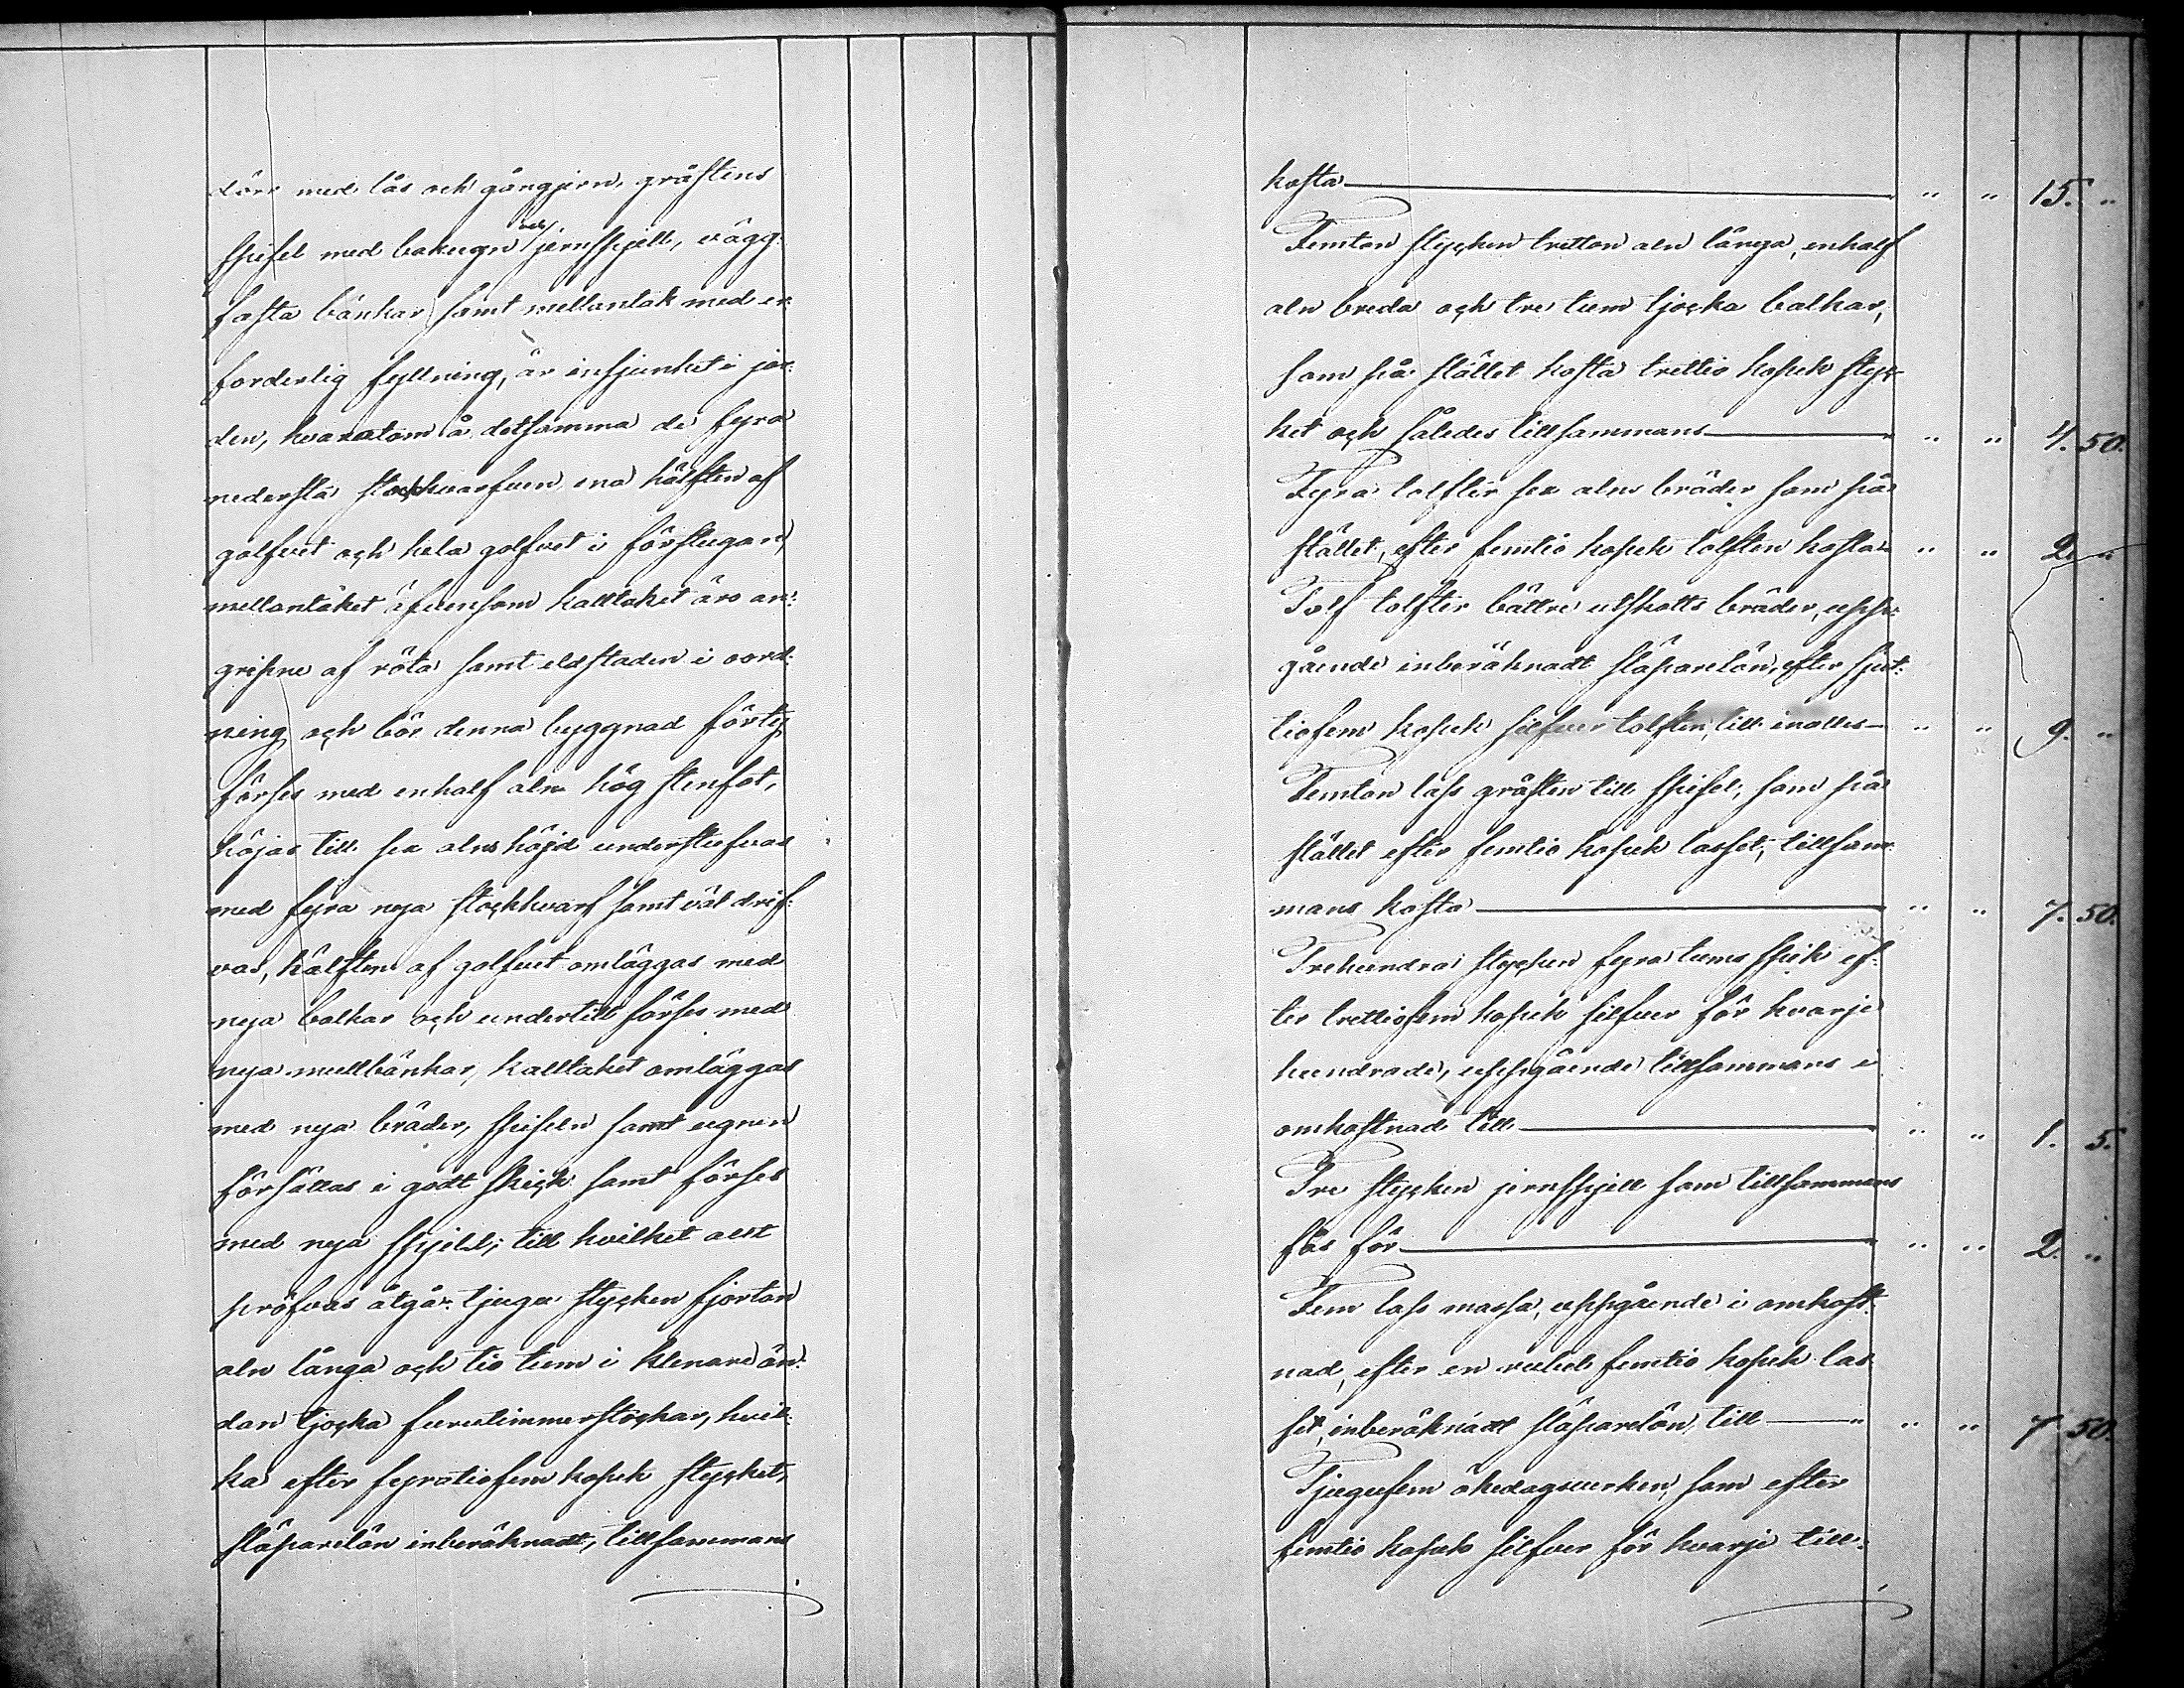 dörr med lås och gångjern, gråstens
spisel med bakugn och jernspjell, vägg-
fasta bänkar samt mellantak med er-
forderlig fyllning, är insjunket i jor-
den, hvarutom å detsamma de fyra
nedersta stockhvarfven, ena hälften af
golfvet och hela golfvet i förstugan,
mellantaket äfvensom kalltaket äro an-
gripne af röta samt eldstaden i oord-
ning och bör denna byggnad förty
förses med enhalf aln hög stenfot,
höjas till sex alns höjd understufvas
med fyra nya stockhvarf samt väl drif-
vas, hälften af golfvet omläggas med
nya balkar och undertill förses med
nya mullbänkar, kalltaket omläggas
med nya bräder, spiseln samt ugnen
försättas i godt skick samt förses
med nya spjell; till hvilket allt
pröfvas åtgå: tjugu stycken fjorton
aln långa och tio tum i klenare än-
dan tjocka furutimmerstockar, hvil-
ka efter fyratiofem kopek stycket,
släparelön inberäknadt, tillsammans
kosta " " 15. "
Femton stycken tretton aln långa, enhalf
aln breda och tre tum tjocka balkar,
som på stället kosta trettio kopek styc-
ket och således tillsammans " " 4. 50.
Fyra tolfter sex alns bräder som på
stället, efter femtio kopek tolften kosta " " 2. "
Tolf tolfter bättre utskotts bräder, upp-
gående inberäknadt släparelön, efter sjut-
tiofem kopek silfver tolften, till inalles " " 9. "
Femton lass gråsten till spisel, som på
stället efter femtio kopek lasset, tillsam-
mans kosta " " 7. 50.
Trehundra stycken fyra tums spik ef-
ter trettiofem kopek silfver för hvarje
hundrade, uppgående tillsammans i
omkostnad till " " 1. 5.
Tre stycken jernspjell som tillsammans
fås för " " 2. "
Fem lass massa, uppgående i omkost-
nad, efter en rubel femtio kopek las-
set, inberäknadt släparelön, till " " 7. 50.
Tjugufem ökedagsverken, som efter
femtio kopek silfver för hvarje till-